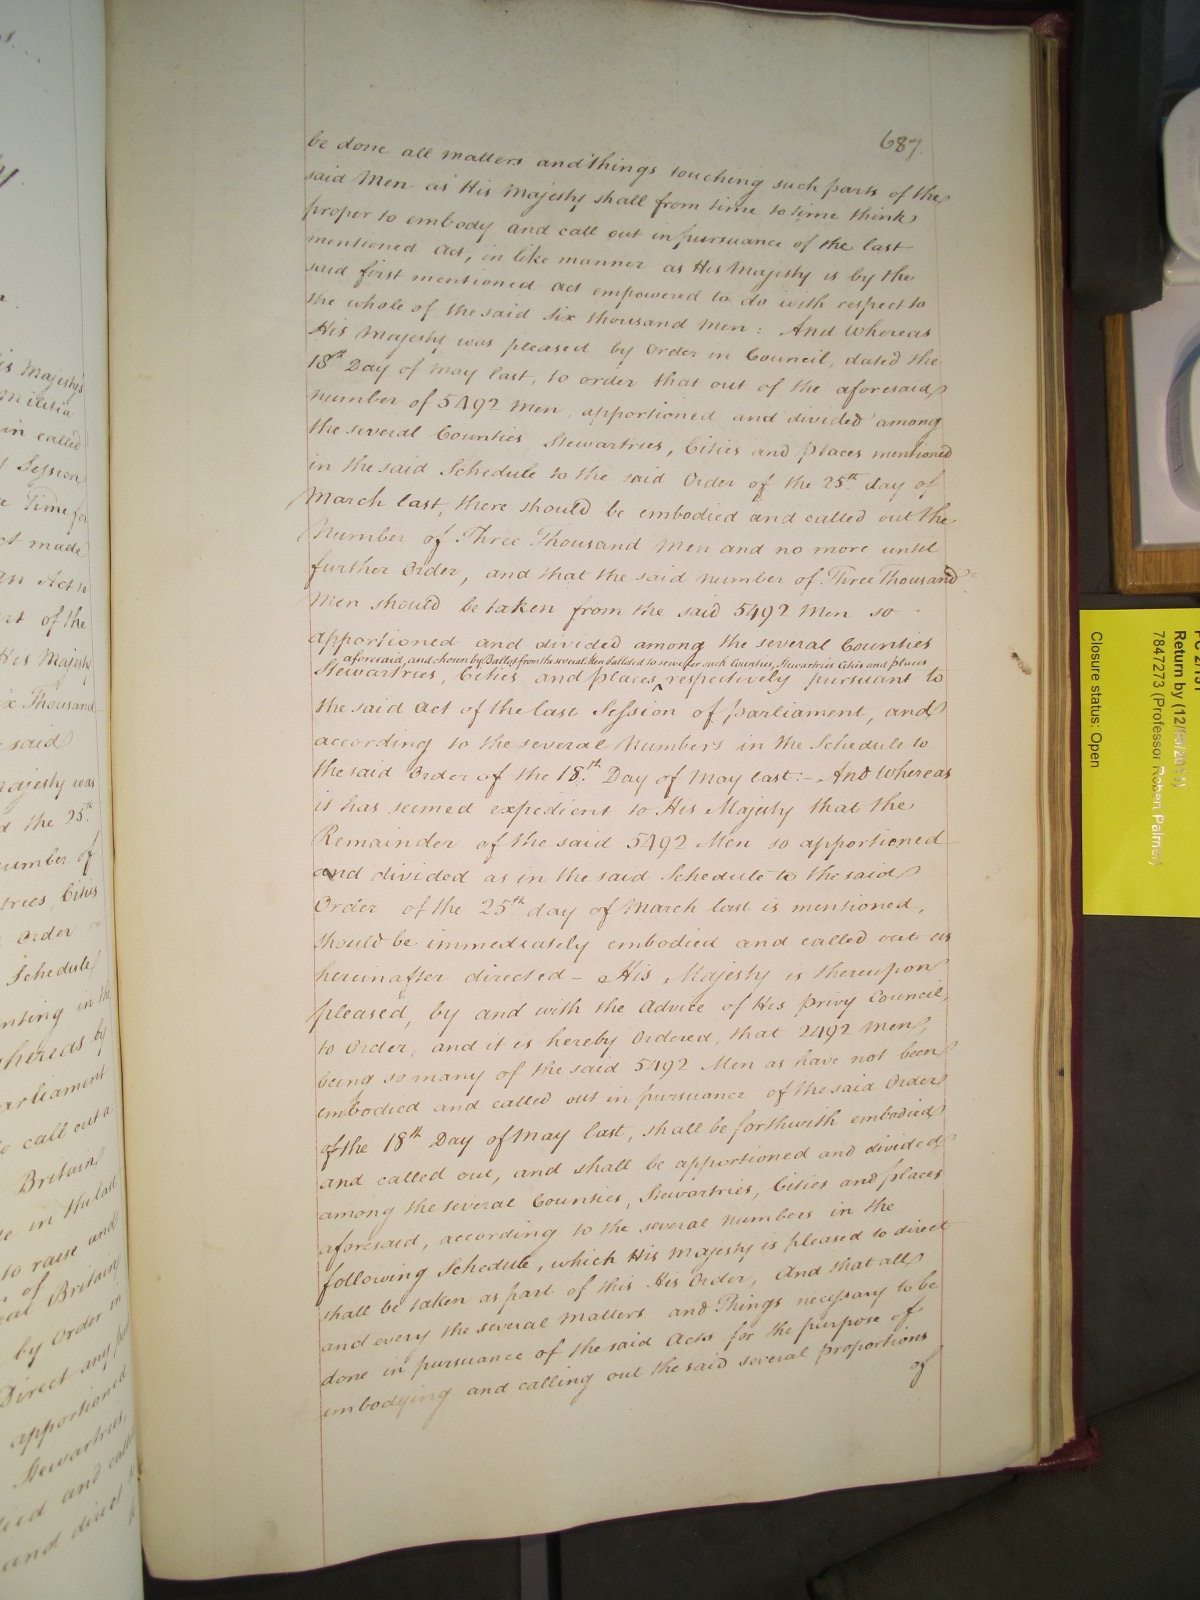 687.
be done all matters and things touching such parts of the
said Men as His Majesty shall from time to time think
proper to embody and call out in pursuance of the last
mentioned Act, in like manner as His Majesty is by the
said first mentioned Act empowered to do with respect to
the whole of the said Six thousand Men : And Whereas
His Majesty was pleased by Order in Council, dated the
18th Day of May last, to order that out of the aforesaid
number of 5492 Men apportioned and divided among
the several Counties, Stewartries, Cities and Places mentioned
in the said Schedule to the said Order of the 25th day of
March last, there should be embodied and called out the
Number of Three Thousand Men and no more until
further Order, and that the said number of Three Thousand
Men should be taken from the said 5492 Men so
apportioned and divided among the several Counties
aforesaid, and chosen by Ballot from the several Men balloted to serve for such Counties, Stewartries Cities and places
Stewartries, Cities and places ^ respectively pursuant to
the said Act of the last Session of parliament, and
according to the several Numbers in the Schedule to
the said Order of the 18th Day of May last:- And Whereas
it has seemed expedient to His Majesty that the
Remainder of the said 5492 Men so apportioned
and divided as in the said Schedule to the said
Order of the 25th day of March last is mentioned,
should be immediately embodied and called out as
hereinafter directed - His Majesty is thereupon
pleased, by and with the Advice of His Privy Council,
to Order, and it is hereby Ordered, that 2492 Men,
being so many of the said 5492 Men as have not been
embodied and called out in pursuance of the said Order
of the 18th Day of May last, shall be forthwith embodied
and called out, and shall be apportioned and divided
among the several Counties, Stewartries, Cities and places
aforesaid, according to the several numbers in the
following Schedule, which His Majesty is pleased to direct
shall be taken as part of this His Order, And that all
and every the several Matters and Things necessary to be
done in pursuance of the said Acts for the purpose of
embodying and calling out the said several proportions
of
Return by (12/
7847273 (Professor Robert Palmer)
Closure status: Open
is Majesty's
Militia
in called
Session
Time for
ct made
an Act to
of the
His Majesty
ix Thousand
said
Majesty was
the 25th
number of
Cities
Order
Schedule
in the
whereas by
arliament
call out a
Britain
in the last
to raise and
of
eat Britain
by Order in
Direct any
apportioned
Stewartries,
and
and direct